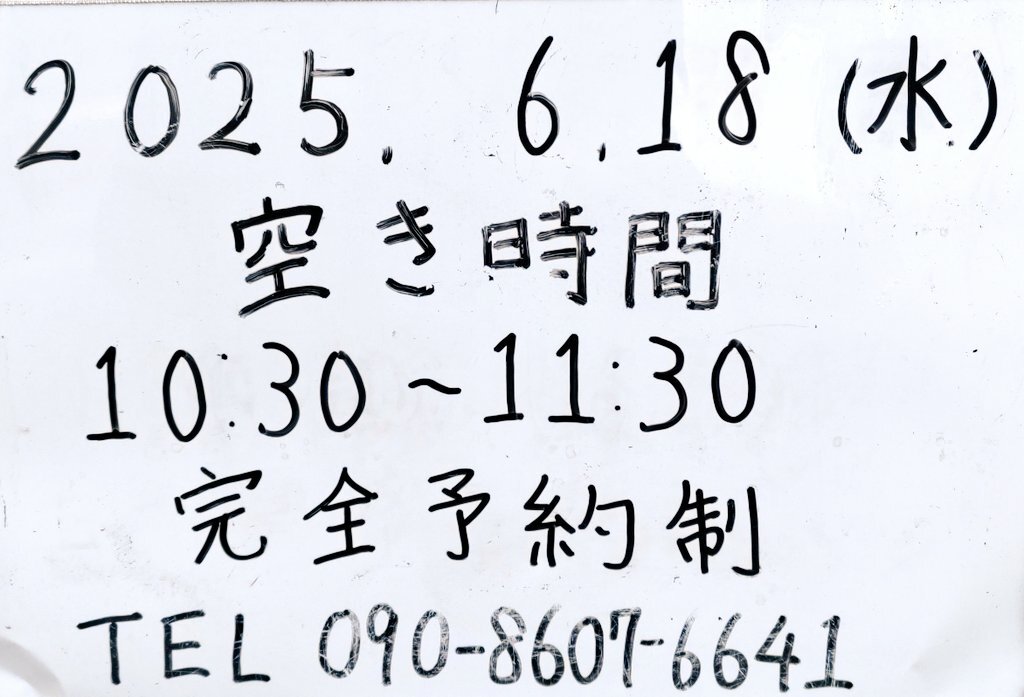 2025. 6.18 (水)
空き時間
10:30~11:30
完全予約制
TEL 090-8607-6641